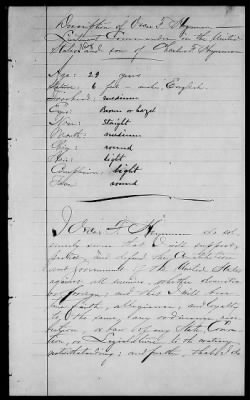 Description of Oren F. Heyerman
Lieutenant Commander in the United
States Navy and son of Charles F. Heyerman
Age: 29 years
Stature, 6 feet – inches, English.
Forehead: medium
Eyes: Brown or hazel
Nose: straight
Mouth: medium
Chin: round
Hair: light
Complexion: light
Face: round
I, Oren F. Heyerman do sol
emnly swear that I will support,
protect, and defend the Constitution
and Government of the United States
against all enemies, whether domestic
or foreign; and that I will bear
true faith, allegiance, and loyalty
to the same, any ordinance, reso
lution, or law of any State, Conven
tion, or Legislature to the contrary
notwithstanding; and further, that I do